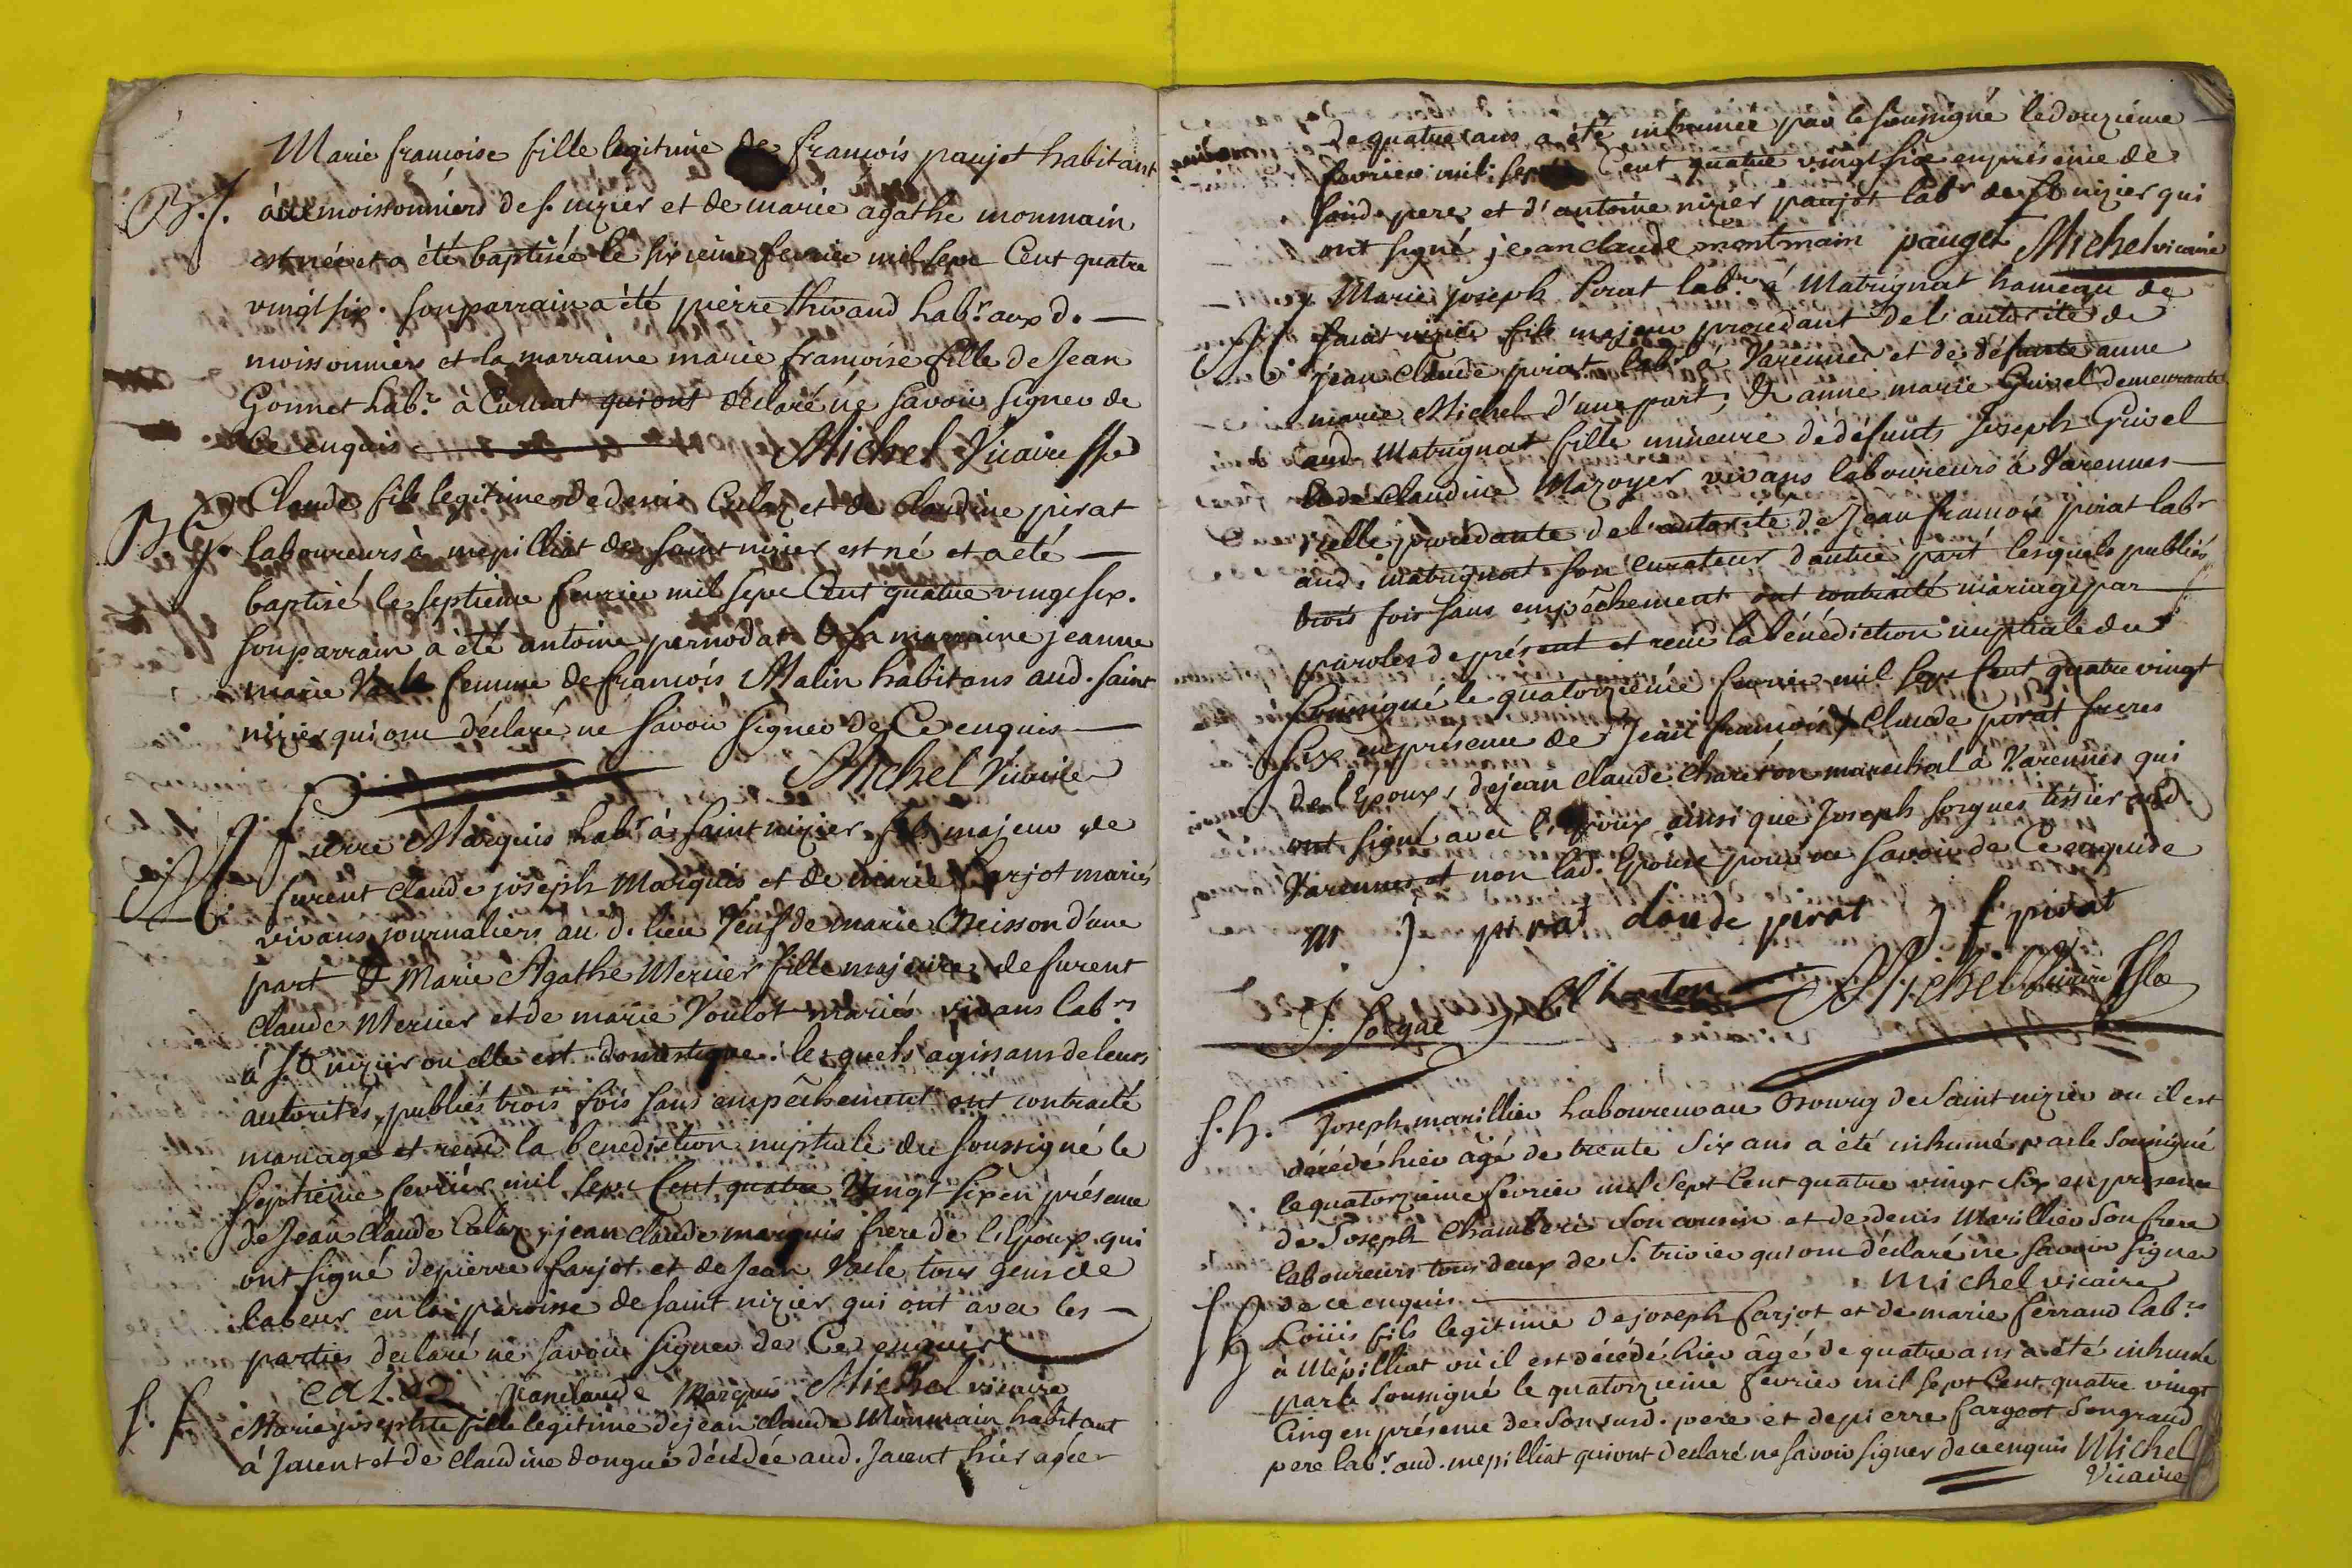 Marie francoise fille legitime de francois paujot habitant
B. f. aux moissonniers de s. nizier et de marie agathe monmain
est née et a été baptisée le sixieme fevrier mil sept Cent quatre
vingt six. son parrain a été pierre thivaud labr. aux d. —
moissonniers et la marraine marie francoise fille de Jean
Gonnet labr. à Curciat qui ont déclaré ne savoir signer de
Ce enquis Michel Vicaire
B G. Claude fils legitime de denis Calaz et de Claudine pirat
laboureurs à mepilliat de saint nizier est né et a été —
baptisé le septieme fevrier mil sept Cent quatre vingt six.
son parrain a été antoine pernodat & sa marraine jeanne
marie Vaile femme de francois Malin habitans aud. saint
nizier qui ont déclaré ne savoir signer de Ce enquis —
Michel Vicaire
M. Pierre Marquis labr à saint nizier fils majeur de
furent claude joseph Marquis et de marie farjot mariés
vivans journaliers au d. lieu Veuf de marie Cheisson d'une
part & Marie Agathe Mercier fille majeure de furent
claude Mercier et de marie Voulot mariés vivans labrs
à st nizier ou elle est domestique. lesquels agissans de leurs
autorités, publiés trois fois sans empêchement ont contracté
mariage et recu la benediction nuptiale du soussigné le
septieme fevrier mil sept Cent quatre Vingt six en présence
de Jean Claude Calaz, jean claude marquis frere de l'Epoux qui
ont signé de pierre farjot et de Jean Vaile tous gens de
labeur en la paroisse de saint nizier qui ont avec les —
parties declaré ne savoir signer de Ce enquis
calaz Jean claude Marquis Michel vicaire
S. f. Marie josephte fille legitime de jean claude Monmain habitant
à Jarent et de claudine dongue décédée aud. Jarent hier agée
de quatre ans a été inhumée par le soussigné le douzième
fevrier mil sept Cent quatre vingt six en présence de
sond. pere et d'antoine nizier paujot labr de st nizier qui
ont signé jean claude montmain pauget Michel vicaire
M. Marie joseph Pirat labr. à Matrignat hameau de
saint nizier fils majeur procedant de l'autorité de
jean claude pirat labr à Varennes et de défunte anne
marie Michel d'une part, & anne marie Grivel demeurante
aud. Matrignat fille mineure de défunts Joseph Grivel
& de Claudine Mazoyer vivans laboureurs à Varennes —
elle procedante de l'autorité de Jean francois pirat labr
aud. matrignat son curateur d'autre part lesquels publiés
trois fois sans empêchement ont contracté mariage par
paroles de présent et recu la bénédiction nuptiale du
soussigné le quatorzième fevrier mil sept Cent quatre vingt
six en présence de Jean francois & Claude pirat freres
de l'Epoux, de jean claude chareton marechal à Varennes qui
ont signé avec l'Epoux ainsi que Joseph sorgues tissier aud.
Varennes et non lad. Epouse pour ne savoir de Ce enquise
m J pirat claude pirat J f pirat
J. Sorgue Michel Vicaire
S. h. Joseph marillier laboureur au Bourg de Saint nizier ou il est
décédé hier agé de trente six ans a été inhumé par le soussigné
le quatorzieme fevrier mil sept Cent quatre vingt six en présence
de Joseph Chamberi son cousin et de denis Marillier son frere
laboureurs tous deux de S. trivier qui ont déclaré ne savoir signer
de ce enquis. Michel vicaire
S G Louis fils legitime de joseph farjot et de marie ferrand labrs
à Mépilliat où il est décédé hier âgé de quatre ans a été inhumé
par le soussigné le quatorzieme fevrier mil sept Cent quatre vingt
Cinq en présence de son susd. pere et de pierre fargeot son grand
pere labr. aud. mepilliat qui ont declaré ne savoir signer de ce enquis Michel
Vicaire